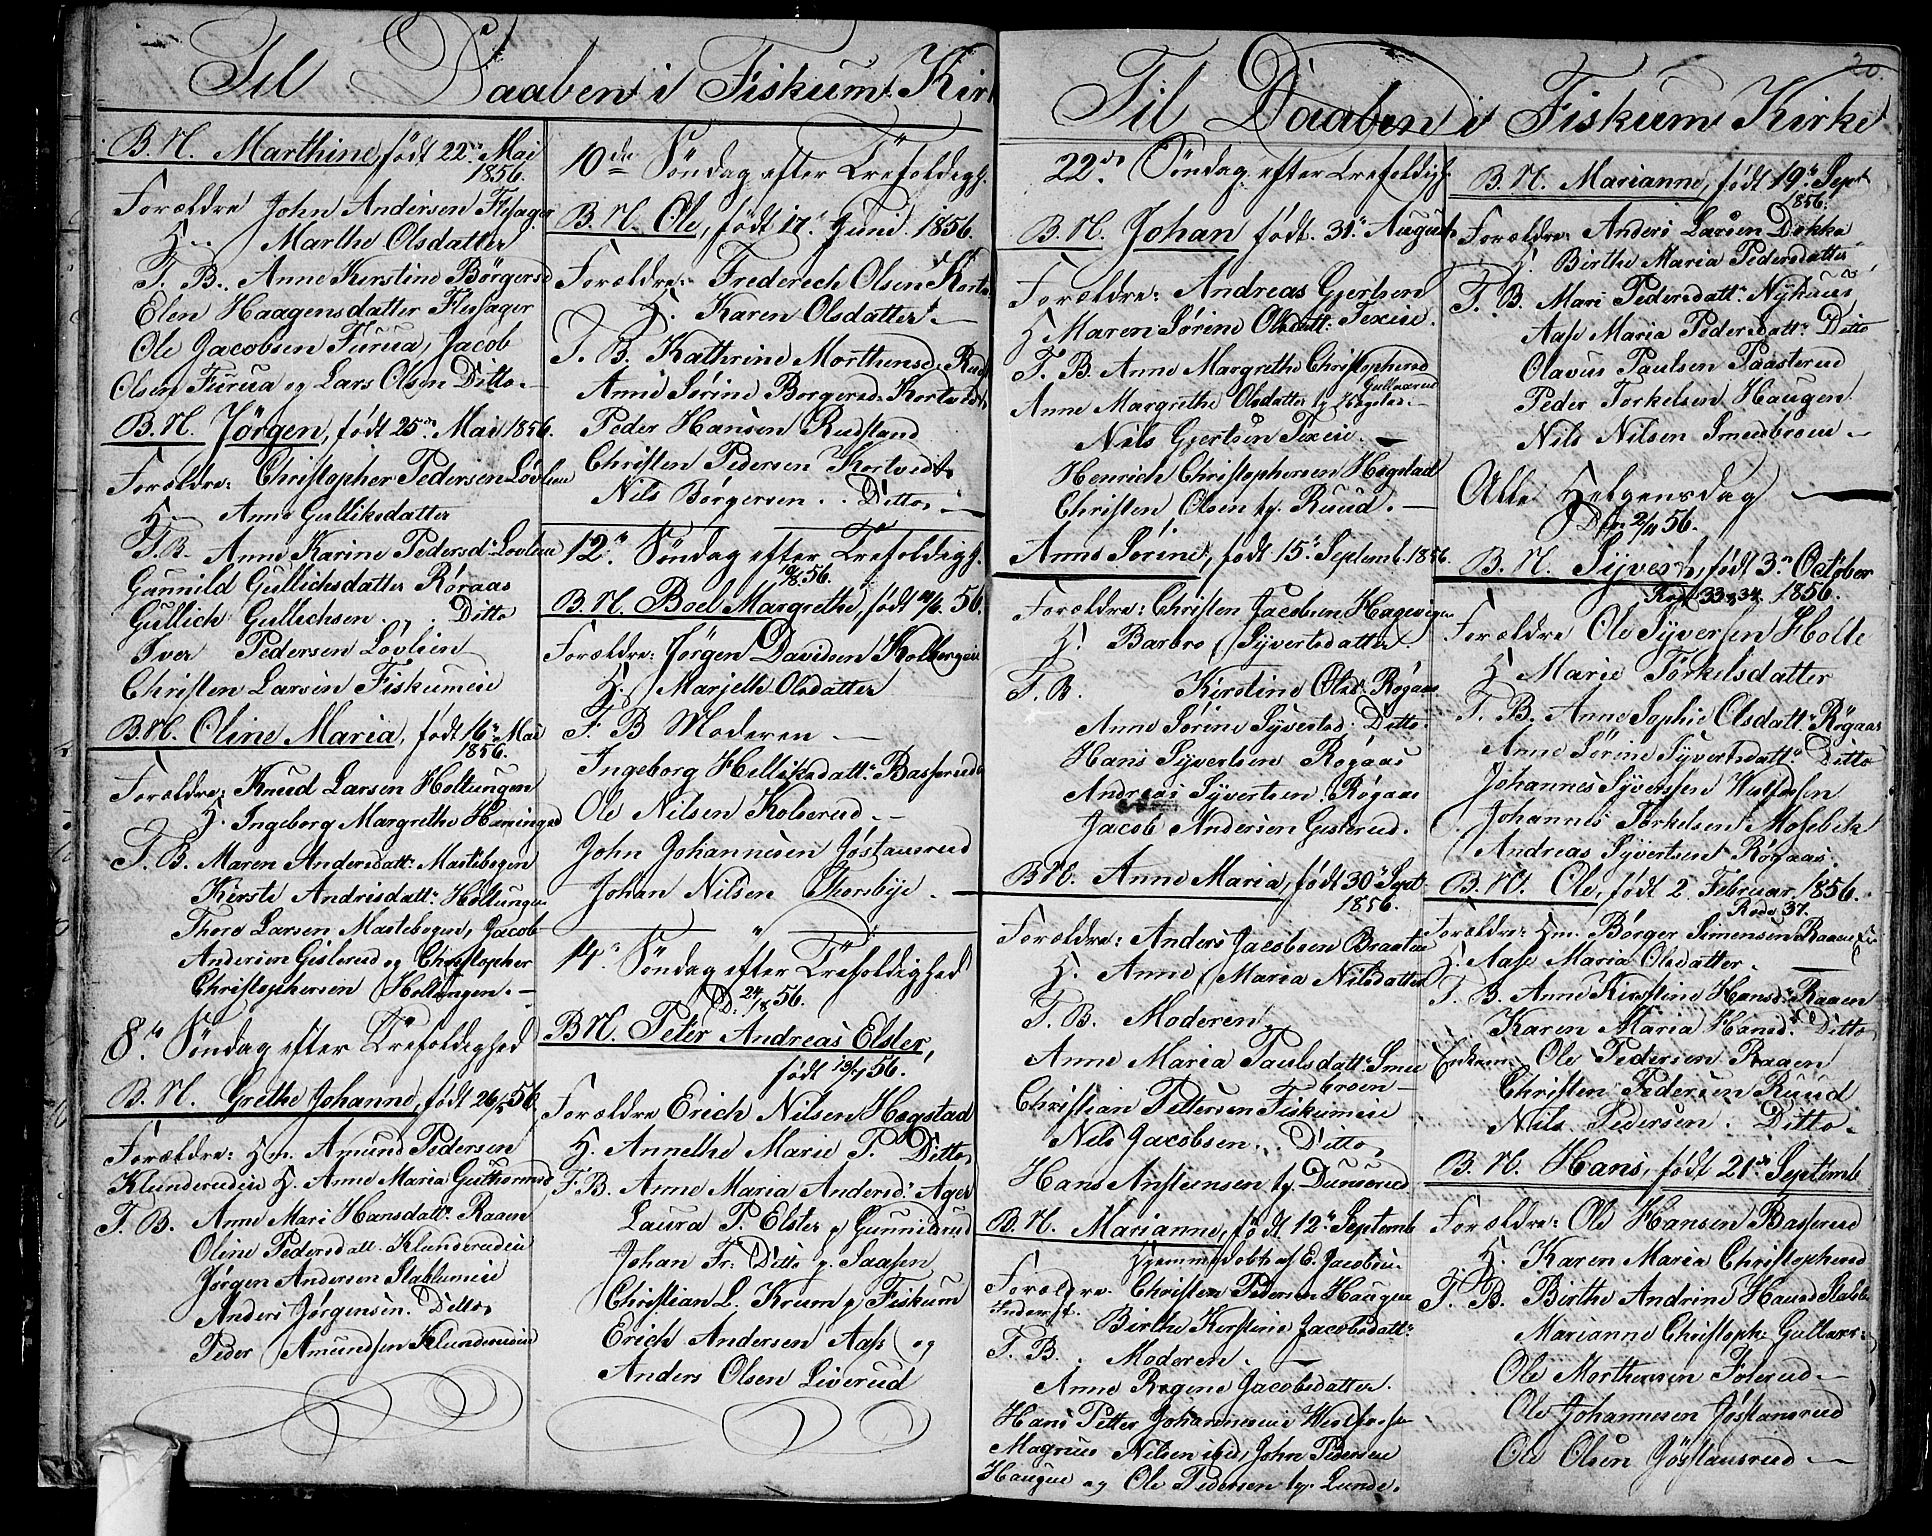 Til Daaben i Fiskum Kir
B. N. Marthine, født 22de Mai
1856.
Forældre John Andersen Flesager
H. Marthe Olsdatter
F. B. Anne Kirstine Børgersd
Elen Haagensdatter Flesager
Ole Jacobsen Furua, Jacob
Olsen Furua og Lars Olsen Ditto.
B. N. Jørgen, født 25de Mai 1856.
Forældre: Christopher Pedersen Løvlien
H. Anne Gulliksdatter
F. B. Anne Karine Pedersd: Løvlien
Gunnild Gullichsdatter Røraas
Gullich Gullichsen Ditto
Iver Pedersen Løvlien
Christen Larsen Fiskumeie
B. N. Oline Maria, født 16de Mai
1856.
Forældre: Knud Larsen Holtungen
H. Ingeborg Margrethe Hemingsd
F. B. Maren Andersdatt: Mastebogen
Kirste Andrisdatt: Holtungen
Thore Larsen Mastebogen, Jacob
Andersen Gislerud og Christopher
Christophersen Holtungen.
8de Søndag efter Trefoldighed
B. N. Grethe Johanne, født 26/5 56.
Forældre: Hm. Amund Pedersen
Klunderudeie H. Anne Maria Guthormsd
F. B. Anne Mari Hansdatt: Raaen
Oline Pedersdatt. Klunderudeie
Jørgen Andersen Stablumeie
Anders Jørgensen. Ditto
Peder Amundsen Klunderudeie
10de Søndag efter Trefoldigh.
B. N. Ole, født 17de Juni 1856.
Forældre: Frederech Olsen Kortv
H. Karen Olsdatter.
F. B. Kathrine Morthensd. Rud
Anne Sørine Børgersd. Kortvedt
Peder Hansen Rudstand
Christen Pedersen Kortvedt
Nils Børgersen. Ditto.
12te Søndag efter Trefoldigh.
10/8 56.
B. N. Boel Margrethe, født 56.
Forældre: Jørgen Davidsen Kolbergeie
H. Marjethe Olsdatter
F. B Moderen
Ingeborg Helliksdatt: Basserud
Ole Nilsen Kolserud.
John Johannesen Jøstansrud
Johan Nilsen Thorsbye.
14de Søndag efter Trefoldighed
D. 24/8 56.
B. N. Peter Andreas Elster,
født 19/7 56.
Forældre Erich Nilsen Hogstad
H. Annethe Marie P. Ditto
F. B. Anne Maria Andersd: Ager
Laura P. Elster p Gunnildrud
Johan Fr: Ditto p. Saasen
Christian L. Krum p Fiskum
Erich Andersen Aass og
Anders Olsen Liverud
20.
Til Daaben i Fiskum Kirke
22de Søndag efter Trefoldigh.
B. N. Johan født. 31te August
Forældre: Andreas Gjertsen
H Maren Sørine Olsdatt: Texeie.
F. B. Anne Margrethe Christophersd
Gullaarud
Anne Margrethe Olsdatter
Nils Gjertsen Texeie.
Henrich Christophersen Hogstad
Christen Olsen ty. Ruud.
Anne Sørine, født 15de Septemb. 1856
Forældre: Christen Jacobsen Hagevigen
H. Barbro Syvertsdatter.
F. B. Kirstine Olsd: Røgaas
Anne Sørine Syvertsd. Ditto
Hans Syvertsen Røgaas
Andreas Syvertsen Røgaas
Jacob Andersen Gislerud.
B. N. Anne Maria, født 30te Sept
1856.
Forældre: Anders Jacobsen Braaten
H. Anne Maria Nilsdatter
F. B. Moderen
Anne Maria Paulsdatt: Smee
broen
Christian Pettersen Fiskumeie
Nils Jacobsen. Ditto
Hans Anstensen ty. Dunserud
B. N. Marianne, født 12te Septemb
Hjemmedøbt af E. Jacobsen
Forældre. Christen Pedersen Haugen
Inderst.
Birthe Kirstine Jacobsdatt:
F. B. Moderen.
Anne Ragine Jacobsdatter.
Hans Petter Johannesen Westfossen
Magnus Nilsen ibid, John Pedersen
Haugen og Ole Pedersen ty. Lunde.
B. N. Marianne, født 19de Sept
1856.
Forældre: Anders Larsen Dokka
H. Birthe Maria Pedersdatter
F. B. Mari Pedersdatt: Nyhuus
Aase Maria Pedersdatt: Ditto
Olavus Paulsen Paasterud
Peder Torkelsen Haugen
Nils Nilsen Smeebroen
Alle Helgensdag
D. 2/11 56.
B. N. Syvert, født 3de October
1856.
Forældre Ole Syversen Holte
H Marie Torkelsdatter
F. B. Anne Sophie Olsdatt: Røgaas
Anne Sørine Syvertsdatt: Ditto
Johannes Syversen Westfossen
Johannes Torkelsen Mosebek
Andreas Syvertsen Røgaas.
B. N. Ole, født 2 Februar 1856.
Forældre: Hm. Børger Simensen Raaen
H. Aase Maria Olsdatter.
F. B. Anne Kirstine Hansd: Raaen
Karen Maria Hansd: Ditto
Enkem: Ole Pedersen Raaen
Christen Pedersen Ruud
Nils Pedersen. Ditto
B. N. Hans, født 21de Septemb
Forældre: Ole Hansen Basserud
H. Karen Maria Christophersd
F. B. Birthe Andrine Hansd Stablu
Marianne Christoph: Gullaar:
Ole Morthensen Foserud
Ole Johannesen Jøstansrud
Ole Olsen Jøstansrud